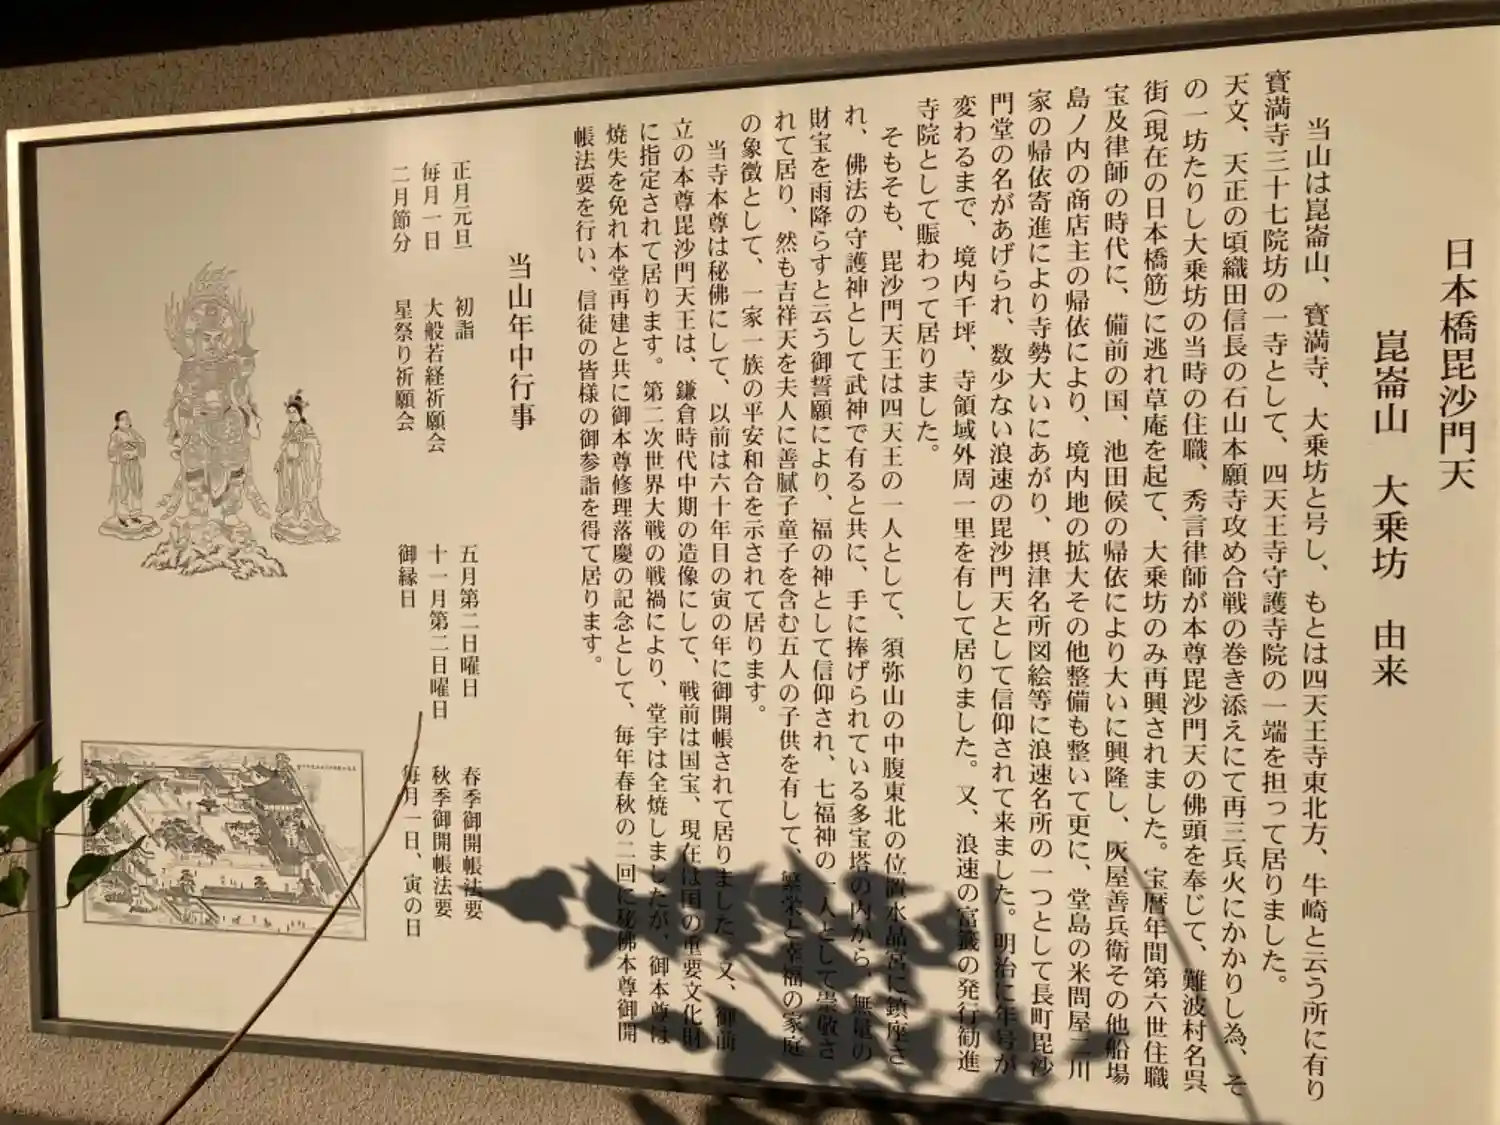 日本橋毘沙門天
崑崙山 大乗坊 由来
当山は崑崙山、寶満寺、大乗坊と号し、もとは四天王寺東北方、牛崎と云う所に有り
寶満寺三十七院坊の一寺として、四天王寺守護寺院の一端を担って居りました。
天文、天正の頃織田信長の石山本願寺攻め合戦の巻き添えにて再三兵火にかかりし為、そ
の一坊たりし大乗坊の当時の住職、秀言律師が本尊毘沙門天の佛頭を奉じて、難波村名呉
街(現在の日本橋筋)に逃れ草庵を起て、大乗坊のみ再興されました。宝暦年間第六世住職
宝及律師の時代に、備前の国、池田候の帰依により大いに興隆し、灰屋善兵衛その他船場
島ノ内の商店主の帰依により、境内地の拡大その他整備も整いて更に、堂島の米問屋二川
家の帰依寄進により寺勢大いにあがり、摂津名所図絵等に浪速名所の一つとして長町毘沙
門堂の名があげられ、数少ない浪速の毘沙門天として信仰されて来ました。明治に年号が
変わるまで、境内千坪、寺領域外周一里を有して居りました。又、浪速の富籤の発行勧進
寺院として賑わって居りました。
そもそも、毘沙門天王は四天王の一人として、須弥山の中腹東北の位置水晶宮に鎮座さ
れ、佛法の守護神として武神で有ると共に、手に捧げられている多宝塔の内から、無量の
財宝を雨降らすと云う御誓願により、福の神として信仰され、七福神の一人として崇敬さ
れて居り、然も吉祥天を夫人に善膩子童子を含む五人の子供を有して、繁栄と幸福の家庭
の象徴として、一家一族の平安和合を示されて居ります。
当寺本尊は秘佛にして、以前は六十年目の寅の年に御開帳されて居りました。又、御前
立の本尊毘沙門天王は、鎌倉時代中期の造像にして、戦前は国宝、現在は国の重要文化財
に指定されて居ります。第二次世界大戦の戦禍により、堂宇は全焼しましたが、御本尊は
焼失を免れ本堂再建と共に御本尊修理落慶の記念として、毎年春秋の二回に秘佛本尊御開
帳法要を行い、信徒の皆様の御参詣を得て居ります。
当山年中行事
正月元旦 初詣
毎月一日 大般若経祈願会
二月節分 星祭り祈願会
五月第二日曜日 春季御開帳法要
十一月第二日曜日 秋季御開帳法要
御縁日 毎月一日、寅の日